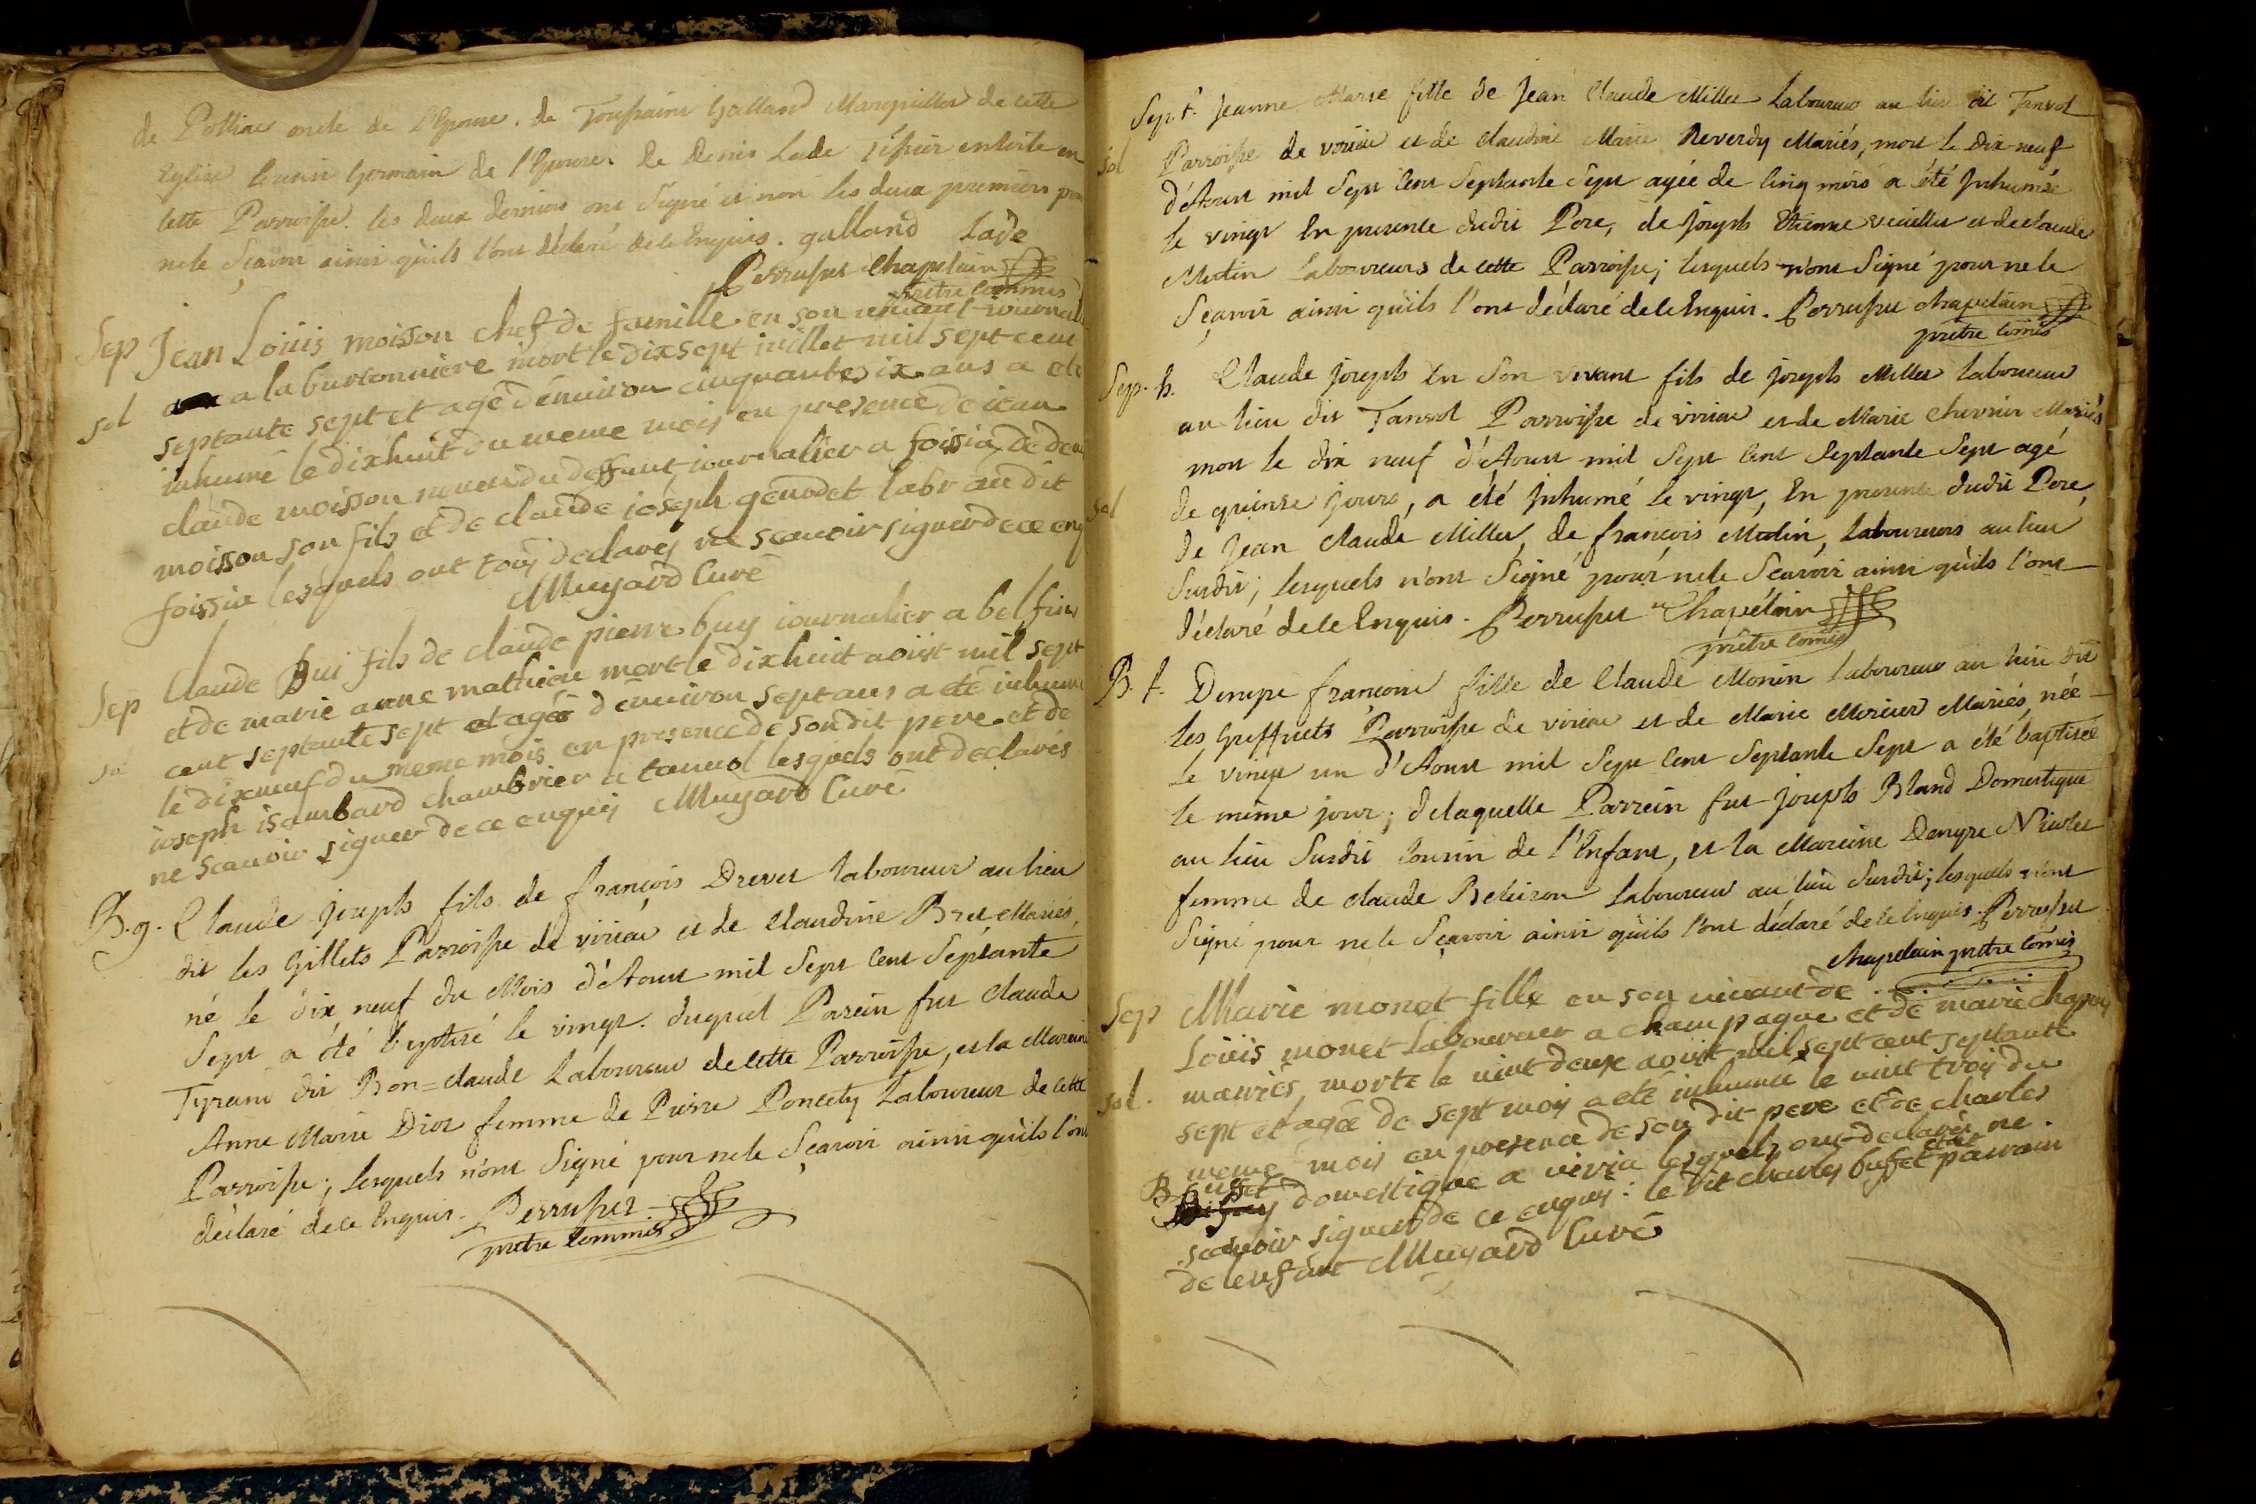 de Polliac oncle de l'Epouse. de Toussaint Galland Marguillier de cette
Eglise Cousin Germain de l'Epouse. de Denis Lade en
cette Parroisse. les deux derniers ont signé et non les deux premiers pour
ne le sçavoir ainsi qu'ils l'ont déclaré de ce Enquis. galland Lade
Perruset Chapelain
prêtre Commis
Sep Jean Loüis moisson chef de famille en son vivant journalier
a la burtonniere mort le dixsept juillet mil sept cent
sol septante sept et agé d'environ cinquante six ans a eté
inhumé le dixhuit du meme mois en presence de iean
claude moisson neveu du deffunt iournalier a foissia de
moisson son fils et de claude ioseph genodet labr au dit
foissia lesquels ont tous declarés ne scavoir signer de ce enq
Muyard Curé
Sep Claude Bui fils de claude pierre buy iournalier a bel
et de marie anne mathieu mort le dixhuit aoüst mil sept
cent septante sept et agé d'environ sept ans a eté inhumé
le dixneuf du meme mois en presence de son dit pere et de
ioseph isambard chambrier a tanvol lesquels ont declarés
ne scavoir signer de ce enquis Muyard Curé
B. g. Claude joseph fils de françois Drevet laboureur au lieu
dit les Gillets Parroisse de viriac et de Claudine Bret Mariés,
né le dix neuf du Mois d'Aoust mil Sept Cent Septante
Sept a été baptisé le vingt. duquel Parein fut Claude
Tyrant dit Bon=claude Laboureur de cette Parroisse, et la Mareine
Anne Marie Dior femme de Pierre Poncety Laboureur de cette
Parroisse; lesquels n'ont Signé pour ne le Sçavoir ainsi qu'ils l'ont
déclaré de ce Enquis. Perruset
prêtre Commis
Sep. f. Jeanne Marie fille de Jean Claude Millet Laboureur au lieu dit Tanvol
sol Parroisse de viriac et de Claudine Marie Reverdy Mariés, mort le dix-neuf
d'Aoust mil Sept Cent Septante Sept agée de Cinq mois a été Inhumée
le vingt En presence dudit Pere, de Joseph Etienne et de Claude
Laboureurs de cette Parroisse; lesquels n'ont Signé pour ne le
Sçavoir ainsi qu'ils l'ont déclaré de ce Enquis. Perruset chapelain
prêtre Comis
Sep. h. Claude joseph En Son vivant fils de joseph Millet laboureur
au lieu dit Tanvol Parroisse de viriac et de Marie Chevrier Mariés
mort le dix neuf d'Aoust mil Sept Cent Septante Sept agé
sol de quinse jours, a été Inhumé le vingt, En presence dudit Pere,
de Jean Claude Millet, de françois Laboureurs au lieu
Susdit; lesquels n'ont Signé pour ne le Sçavoir ainsi qu'ils l'ont
déclaré de ce Enquis. Perruset Chapelain
prêtre Comis
B. f. Denyse françoise fille de Claude Monin laboureur au lieu dit
les Greffiets Parroisse de viriac et de Marie Morier Mariés, née
le vingt un d'Aoust mil Sept Cent Septante Sept a été baptisée
le même jour; de laquelle Parrein fut joseph Bland Domestique
au lieu Susdit Cousin de l'Enfant, et la Mareine Denyse Nicolet
femme de claude Laboureur au lieu Susdit; lesquels n'ont
Signé pour ne le Sçavoir ainsi qu'ils l'ont déclaré de ce Enquis. Perruset
chapelain prêtre Comis
Sep Marie monet fille en son vivant de
Loüis monet laboureur a champagne et de marie chapuy
sol. mariés, morte le vint deux aoüst mil sept cent septante
sept et agée de sept mois a eté inhumée le vint trois du
meme mois en presence de son dit pere et de charles
Bufet domestique a viria lesquels ont declarés ne
scavoir signer de ce enquis: le dit charles bufet etoit parrain
de lenfant Muyard Curé